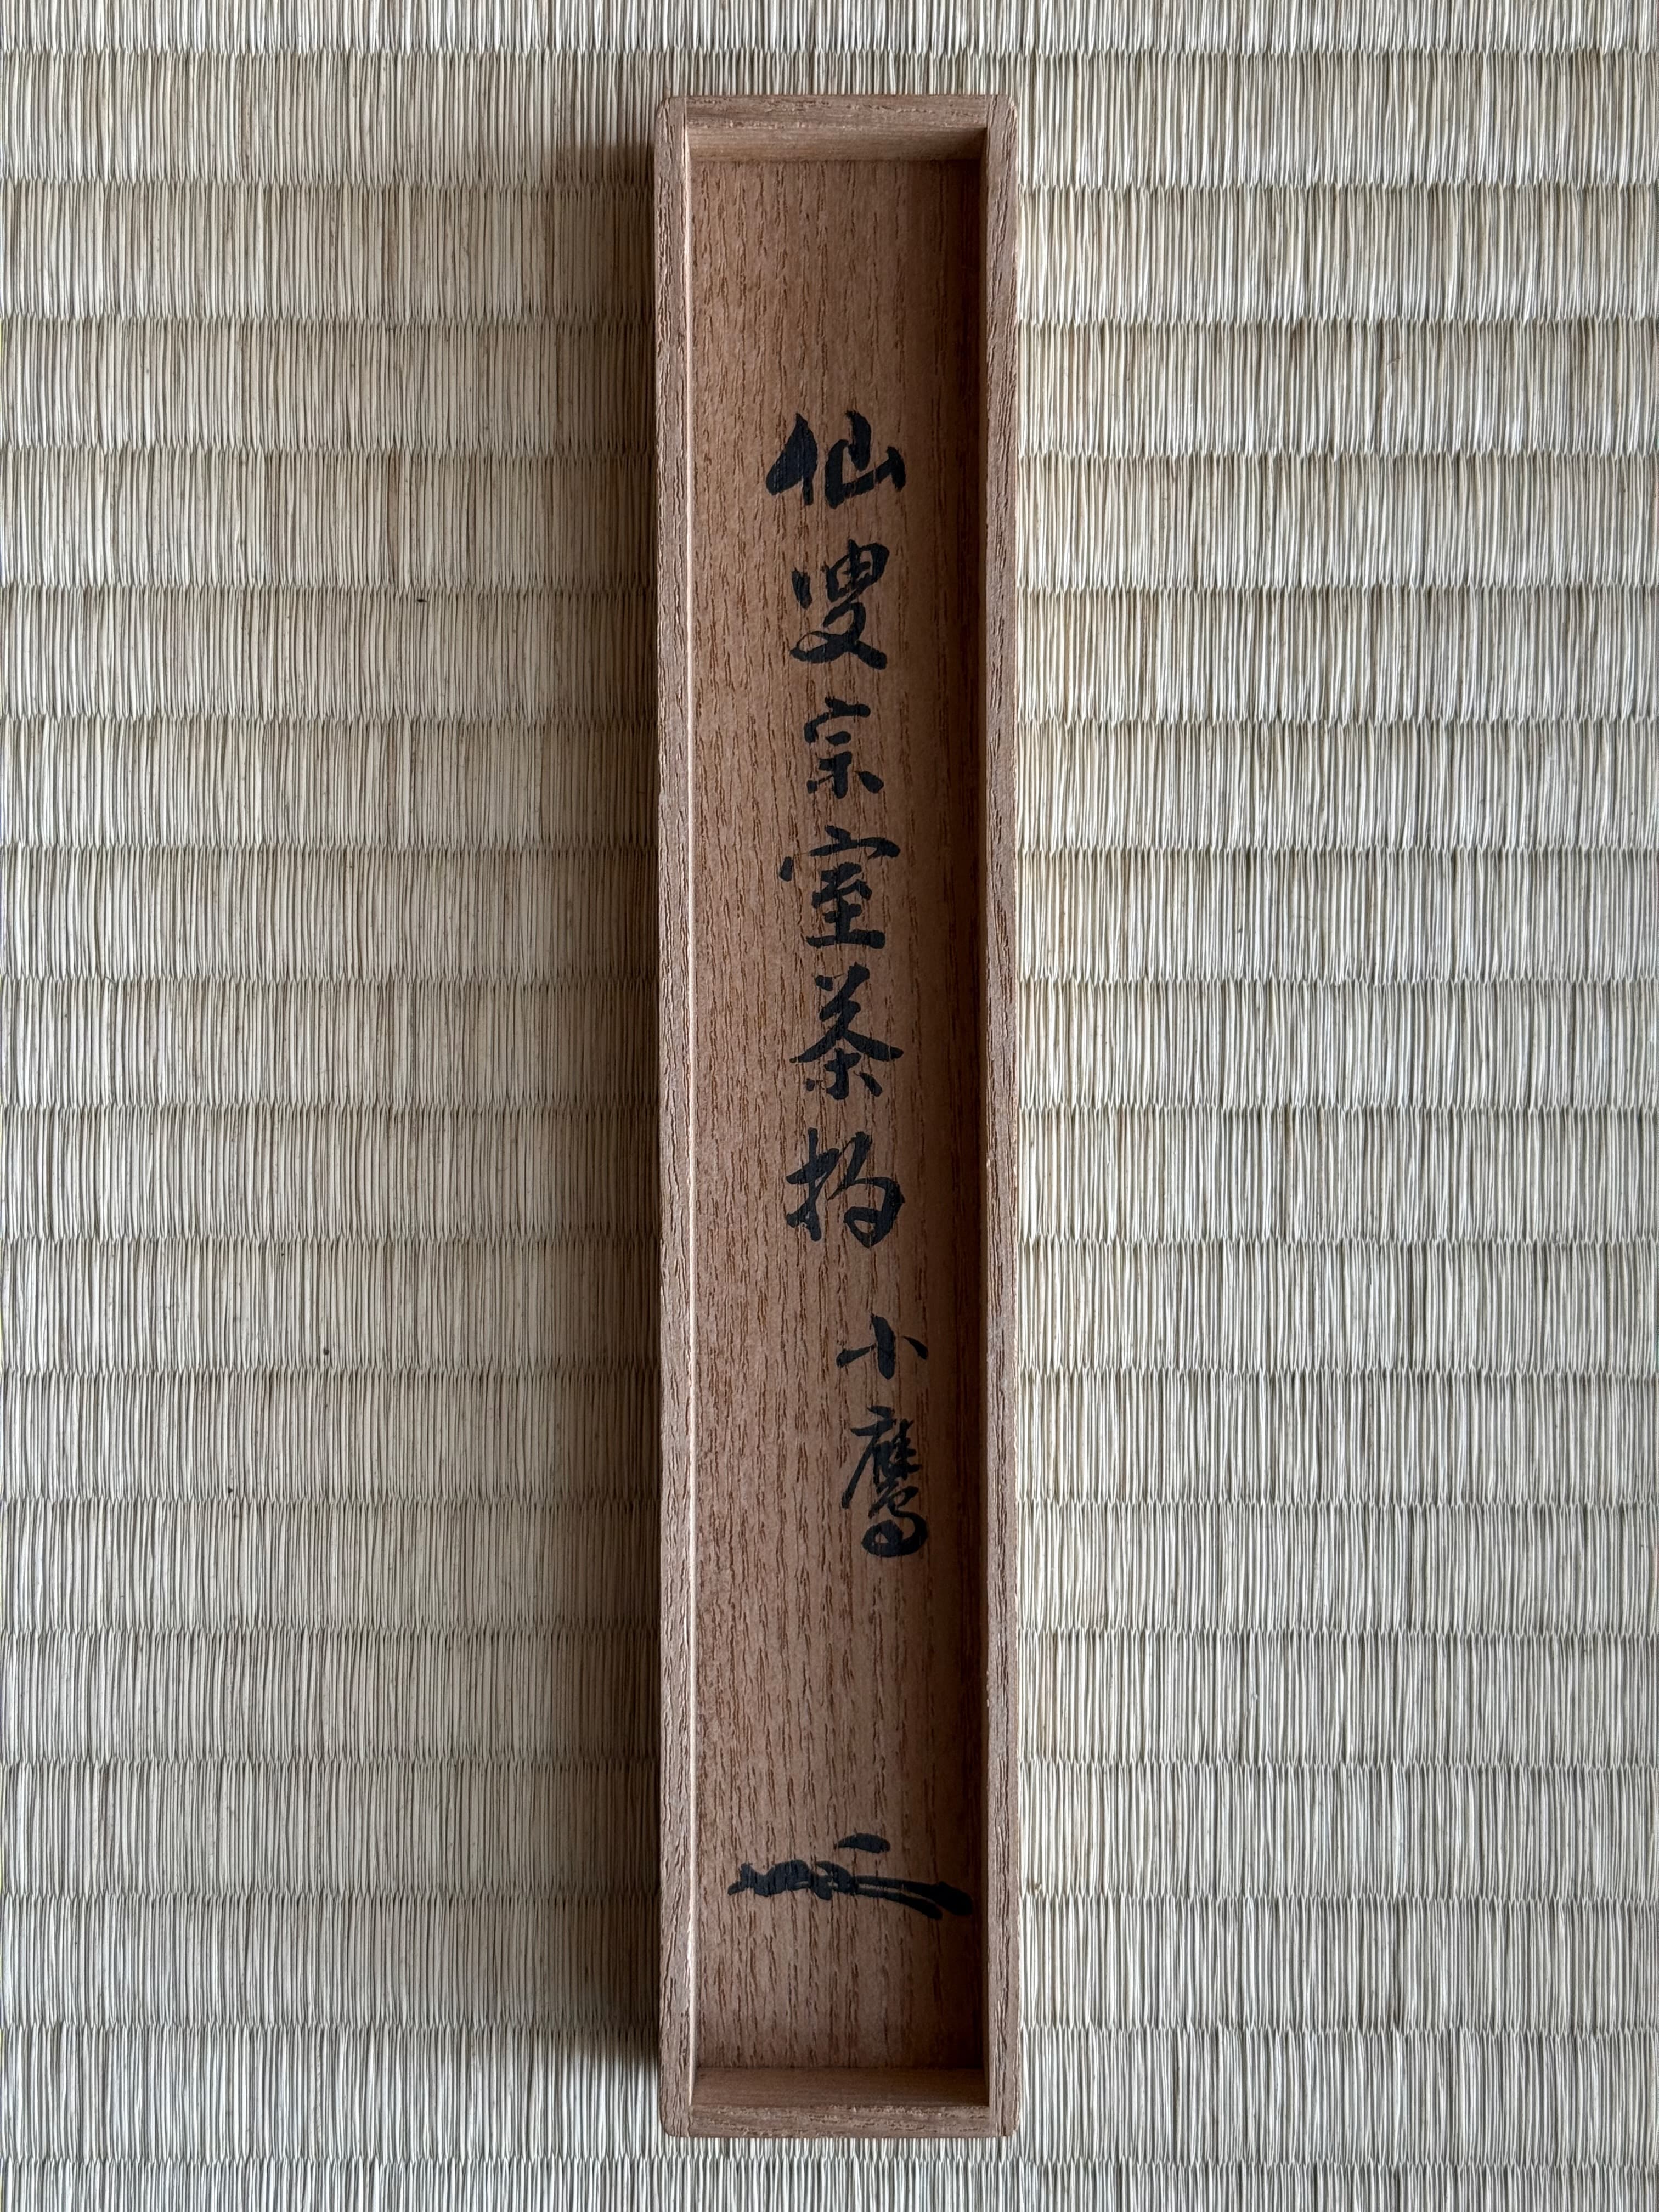 仙叟宗室茶杓 小鷹